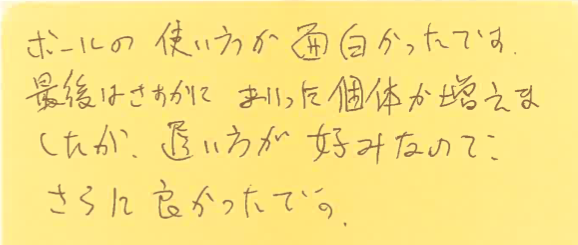 ボールの使い方が面白かったです.
最後はさすがにまいった個体が増えま
したが、追い方が好みなので
さらに良かったです.